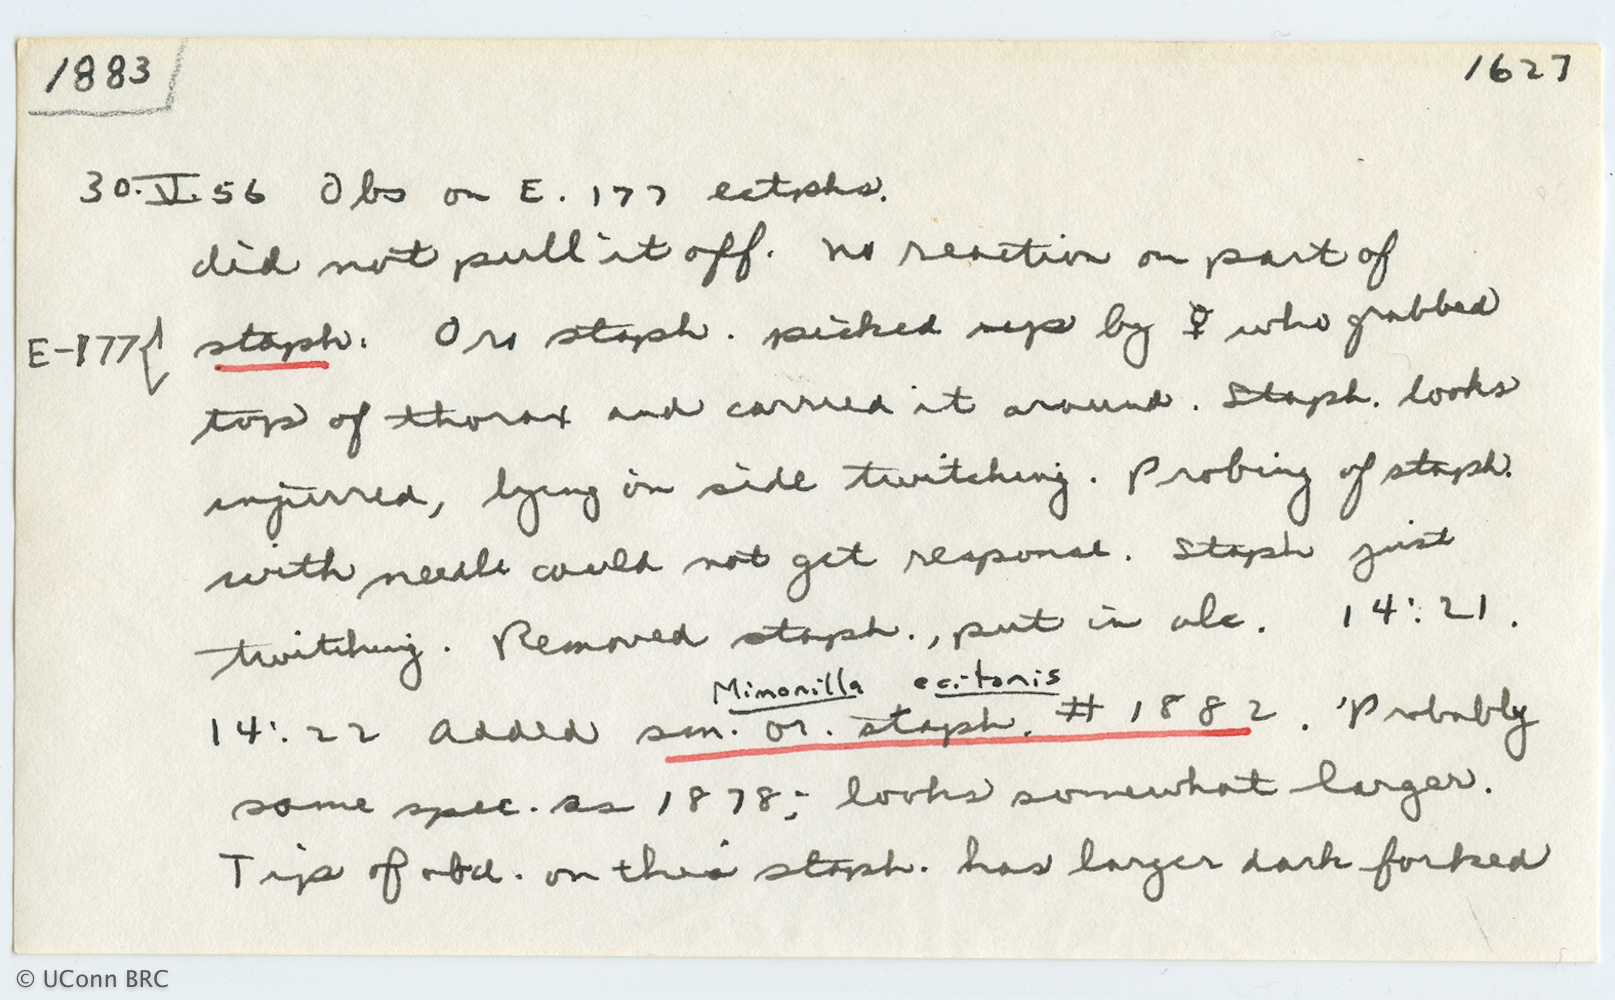 1883
1627
30.V.56 Obs on E. 177 ectophs.
did not pull it off. No reaction on part of
E-177{ staph. Ors staph. picked up by ☿ who grabbed
top of thorax and carried it around. Staph. looks
injurred, lying on side twitching. Probing of staph.
with needle could not get response. Staph just
twitching. Removed staph., put in alc. 14:21.
Mimonilla ecitonis
14:22 Added sm. or. staph. # 1882. Probably
same spec. as 1878; looks somewhat larger.
Tip of abd. on this staph. has larger dark forked
© UConn BRC